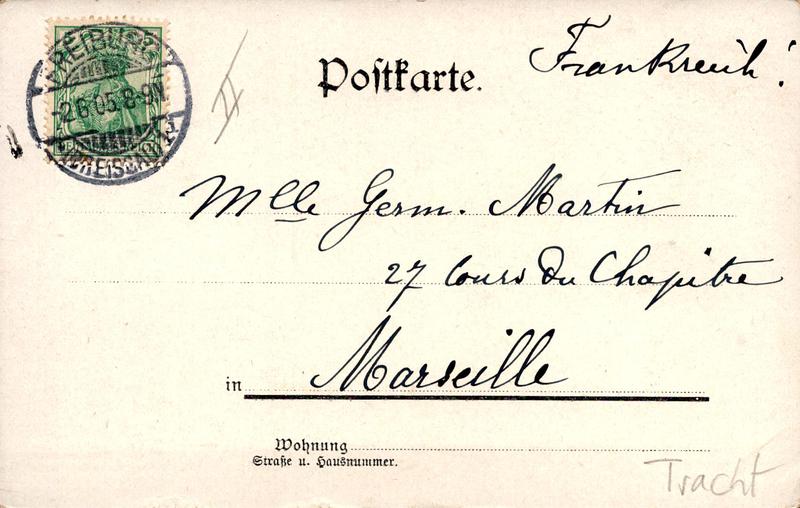 FREIBURG
-2.6.05.8-9N.
Postkarte.
Frankreich!
Mlle Germ. Martin
27 Cours du Chapitre
in Marseille
Wohnung
Straße u. Hausnummer.
Tracht